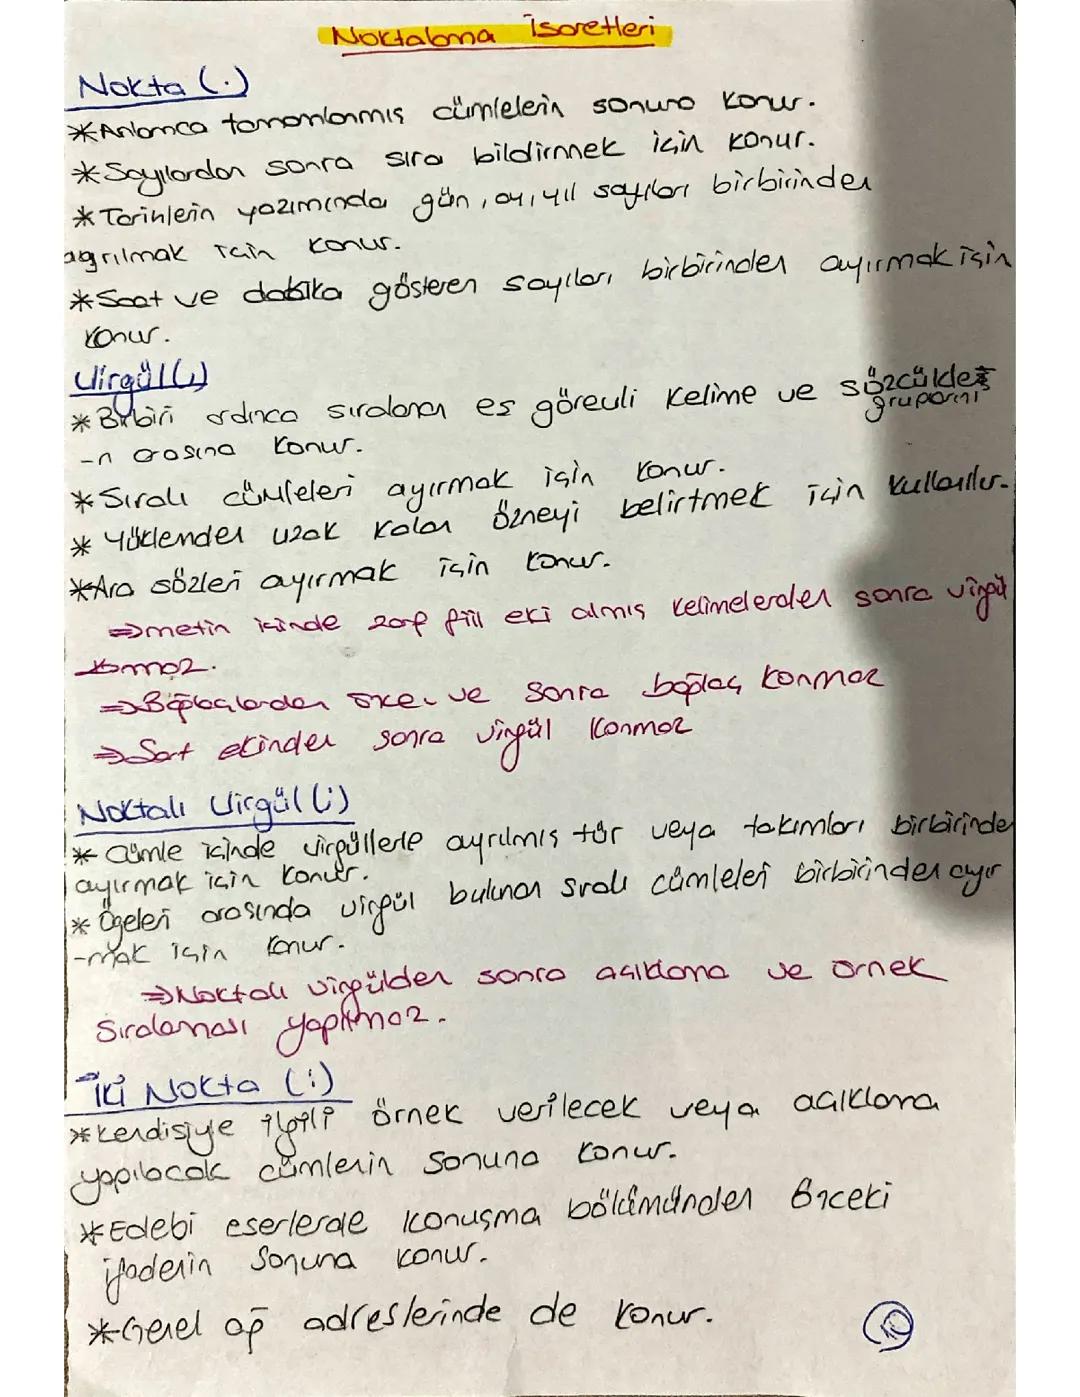 Noktalama İşaretleri
Nokta (.)
*Anlamca tamamlanmış cümlelerin sonuna konur.
*Sayılardan sonra sıra bildirmek için konur.
*Tarihlerin yazımında gün, ay, yıl sayıları birbirinden
ayrılmak için konur.
*Saat ve dakika gösteren sayıları birbirinden ayırmak için
konur.
Virgül (,)
*Birbiri ardınca sıralanan eş görevli kelime ve sözcükler
gruplarını
-n arasına konur.
*Sıralı cümleleri ayırmak için konur.
* Yüklemden uzak kalan özneyi belirtmek için kullanılır.
*Ara sözleri ayırmak için konur.
⇒metin içinde zarf fiil eki almış kelimelerden sonra virgül
konmaz.
⇒Bağlaçlardan önce ve sonra bağlaç konmaz
⇒Şart ekinden sonra virgül konmaz
Noktalı Virgül (;)
* Cümle içinde virgüllerle ayrılmış tür veya takımları birbirinden
ayırmak için konur.
* Ögeleri arasında virgül bulunan sıralı cümleleri birbirinden ayır
-mak için konur.
⇒Noktalı virgülden sonra açıklama ve örnek
sıralaması yapılmaz.
İki Nokta (:)
*Kendisiyle ilgili örnek verilecek veya açıklama
yapılacak cümlenin sonuna konur.
*Edebi eserlerde konuşma bölümünden önceki
ifadenin sonuna konur.
*Genel ağ adreslerinde de konur.